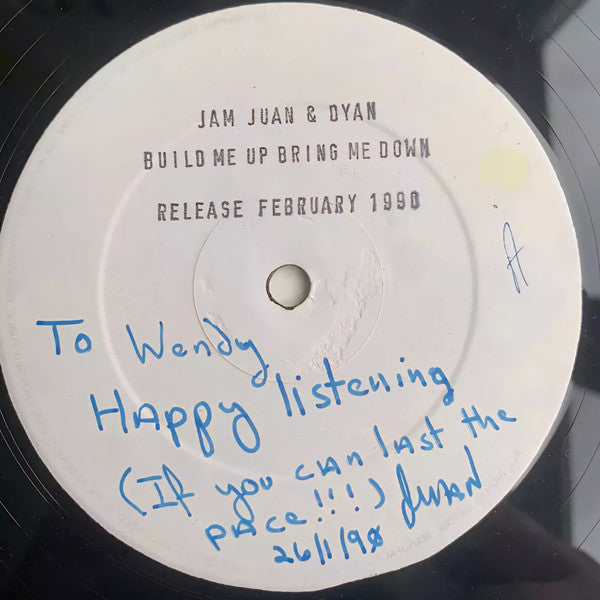 JAM JUAN & DYAN
BUILD ME UP BRING ME DOWN
RELEASE FEBRUARY 1990
A
To Wendy
HAppy listening
(If you can last the
pace!!!) JUAN
26/1/90